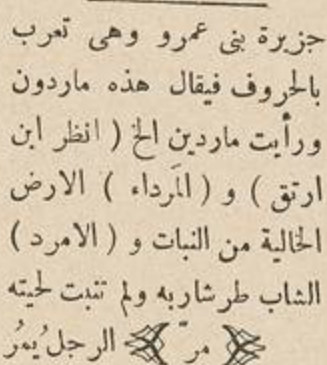 جزيرة بنى عمرو وهى تعرب
بالحروف فيقال هذه ماردون
ورأيت ماردين الخ ( انظر ابن
ارتق ) و ( المَرداء ) الارض
الخالية من النبات و ( الامرد )
الشاب طر شاربه ولم تنبت لحيته
مرّ الرجل يمُر